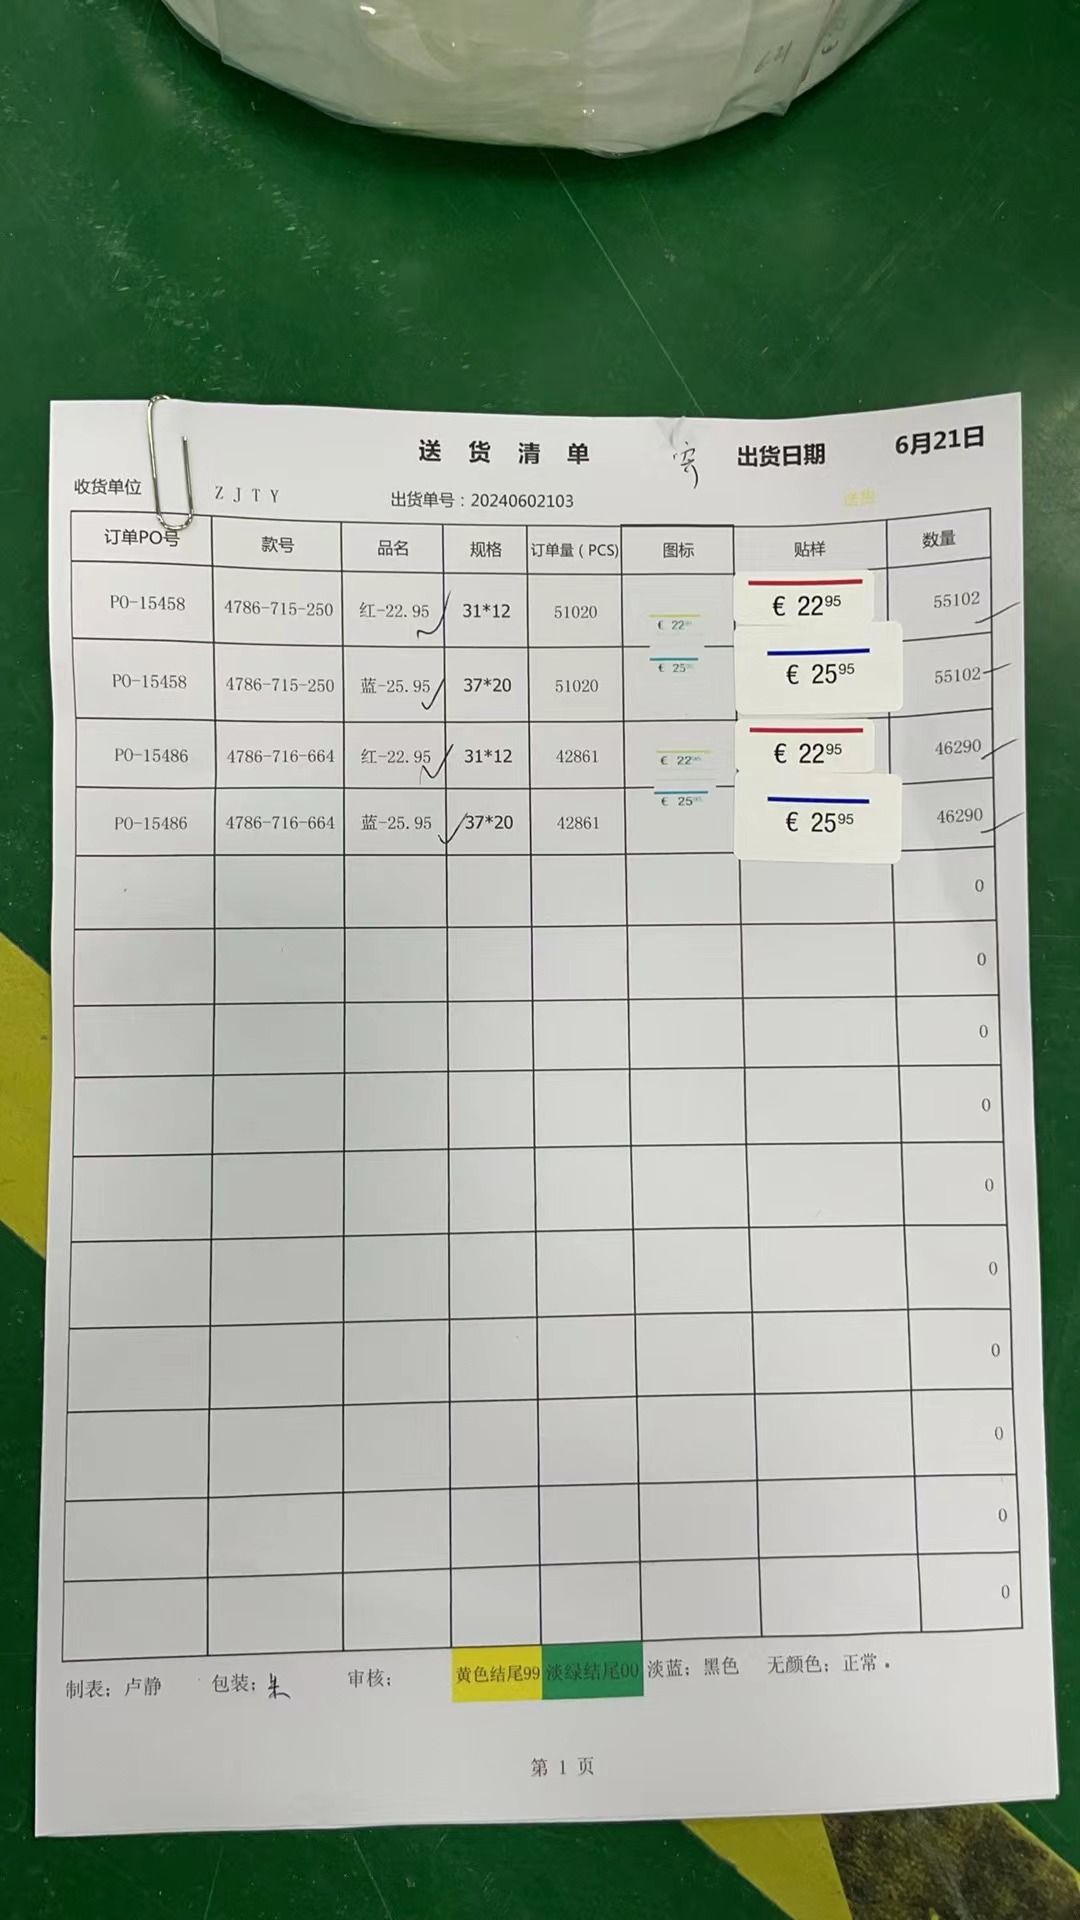 送 货 清 单 寄 出货日期 6月21日
收货单位 ZJTY 出货单号：20240602103 送货
订单PO号 款号 品名 规格 订单量（PCS) 图标 贴样 数量
PO-15458 4786-715-250 红-22.95 31*12 51020 € 22⁹⁵ € 22⁹⁵ 55102
PO-15458 4786-715-250 蓝-25.95 37*20 51020 € 25⁹⁵ € 25⁹⁵ 55102
PO-15486 4786-716-664 红-22.95 31*12 42861 € 22⁹⁵ € 22⁹⁵ 46290
PO-15486 4786-716-664 蓝-25.95 37*20 42861 € 25⁹⁵ € 25⁹⁵ 46290
0
0
0
0
0
0
0
0
0
0
制表；卢静 包装；朱 审核； 黄色结尾99 淡绿结尾00 淡蓝；黑色 无颜色；正常。
第 1 页